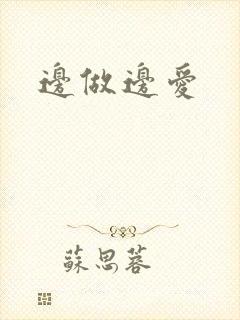 邊做邊愛
蘇思蓉